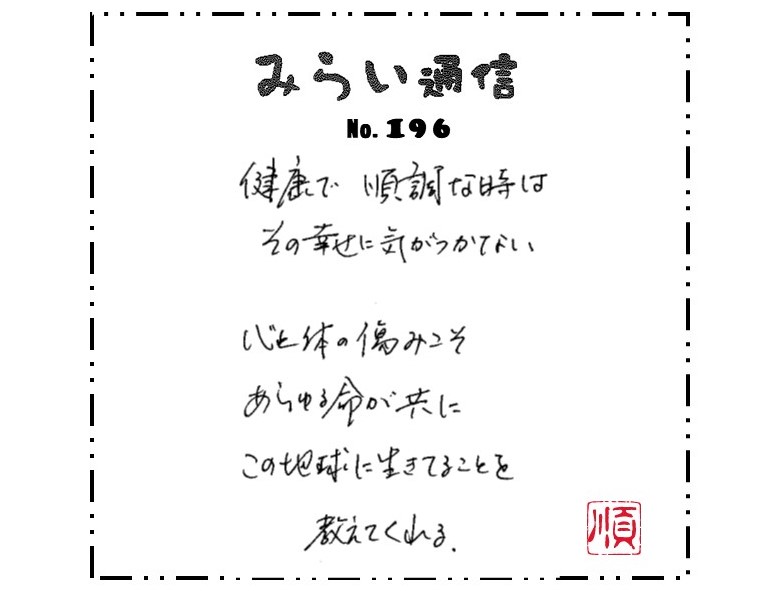 みらい通信
No.196
健康で 順調な時は
その幸せに気がつかない
心と体の傷みこそ
あらゆる命が共に
この地球に生きてることを
教えてくれる.
順